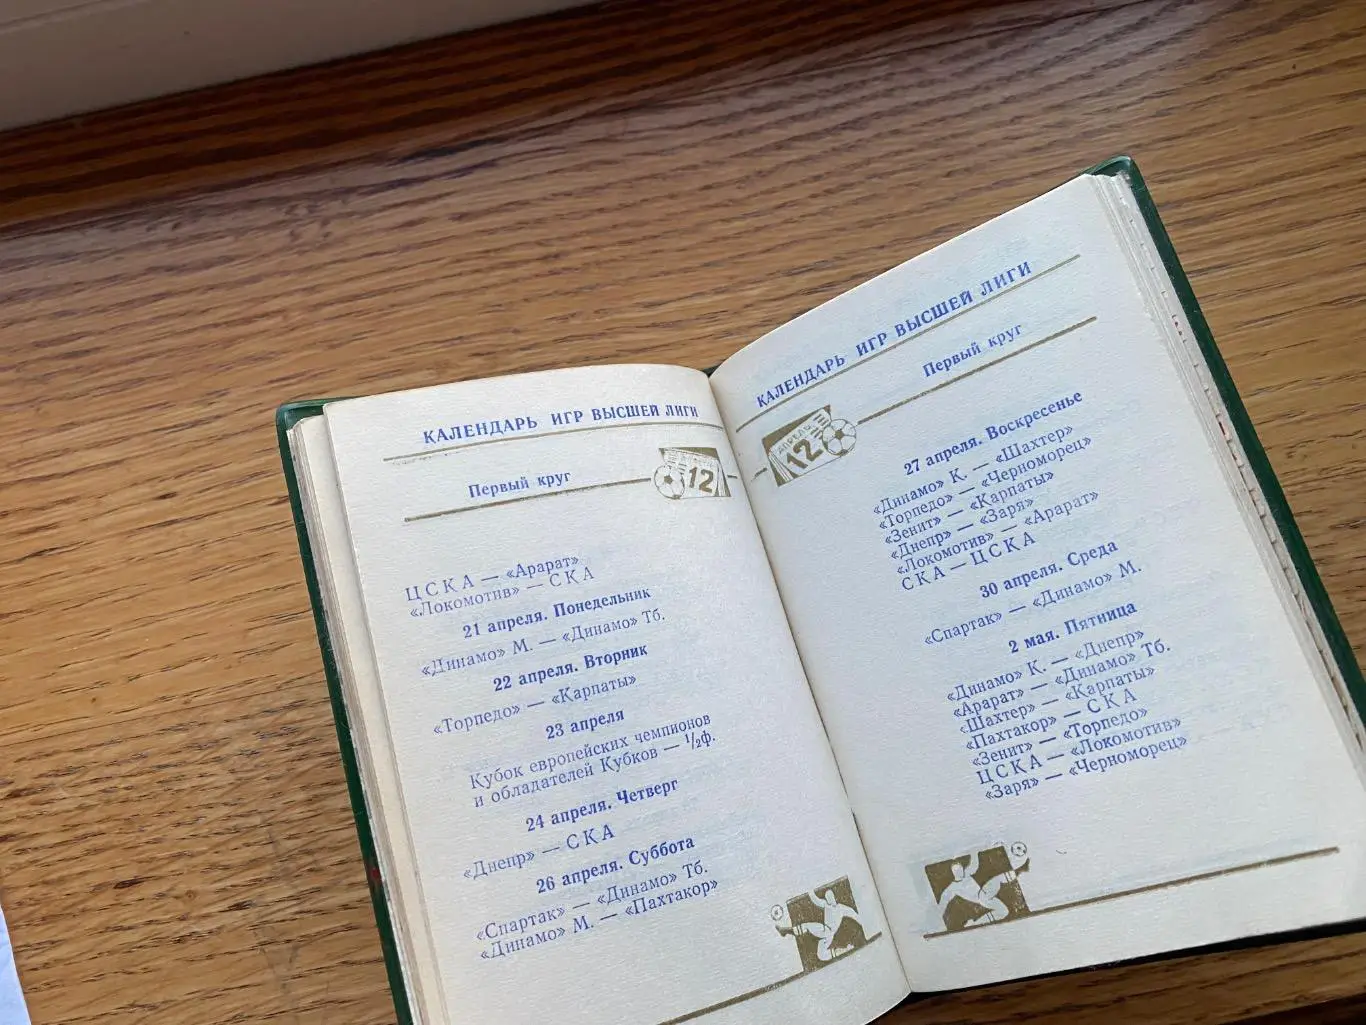 КАЛЕНДАРЬ ИГР ВЫСШЕЙ ЛИГИ
Первый круг
12
ЦСКА — «Арарат»
«Локомотив» — СКА
21 апреля. Понедельник
«Динамо» М. — «Динамо» Тб.
22 апреля. Вторник
«Торпедо» — «Карпаты»
23 апреля
Кубок европейских чемпионов
и обладателей Кубков — 1/2ф.
24 апреля. Четверг
«Днепр» — СКА
26 апреля. Суббота
«Спартак» — «Динамо» Тб.
«Динамо» М. — «Пахтакор»
КАЛЕНДАРЬ ИГР ВЫСШЕЙ ЛИГИ
Первый круг
АПРЕЛЬ
12
27 апреля. Воскресенье
«Динамо» К. — «Шахтер»
«Торпедо» — «Черноморец»
«Зенит» — «Карпаты»
«Днепр» — «Заря»
«Локомотив» — «Арарат»
СКА — ЦСКА
30 апреля. Среда
«Спартак» — «Динамо» М.
2 мая. Пятница
«Динамо» К. — «Днепр»
«Арарат» — «Динамо» Тб.
«Шахтер» — «Карпаты»
«Пахтакор» — СКА
«Зенит» — «Торпедо»
ЦСКА — «Локомотив»
«Заря» — «Черноморец»